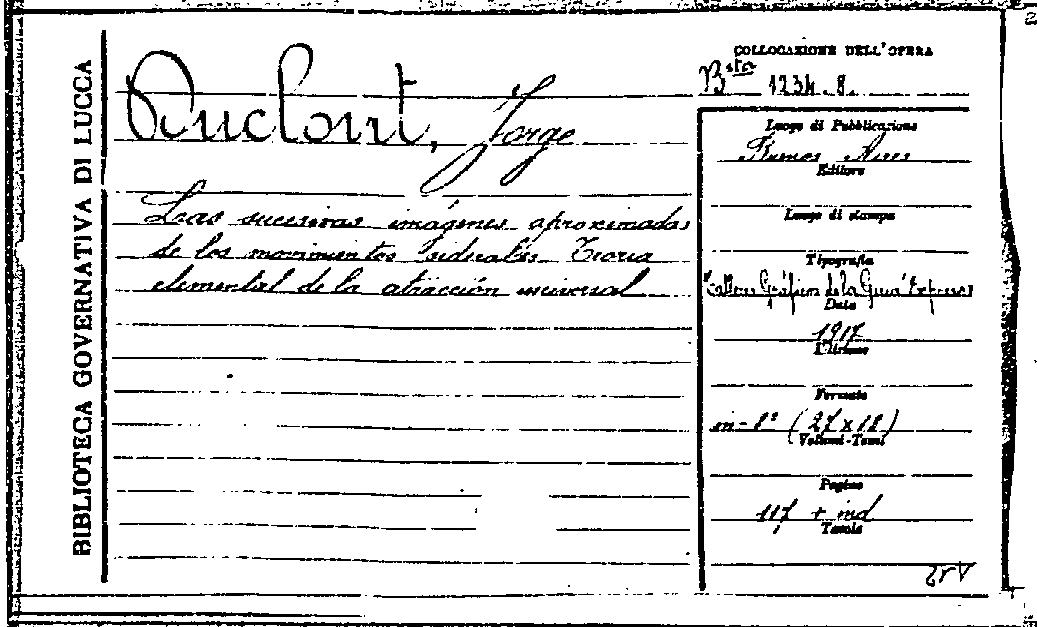 BIBLIOTECA GOVERNATIVA DI LUCCA
Duclout, Jorge
Las sucesivas imágenes aproximadas
de los movimientos siderales. Teoria
elemental de la atracción universal
COLLOCAZIONE DELL'OPERA
Bsta 1234.8.
Luogo di Pubblicazione
Buenos Aires
Editore
Luogo di stampa
Tipografia
Talleres Gráficos de la Guia Expreso
Data
1917
Edizione
Formato
in-8° (27x18)
Volumi-Tomi
Pagine
117 + ind
Tavole